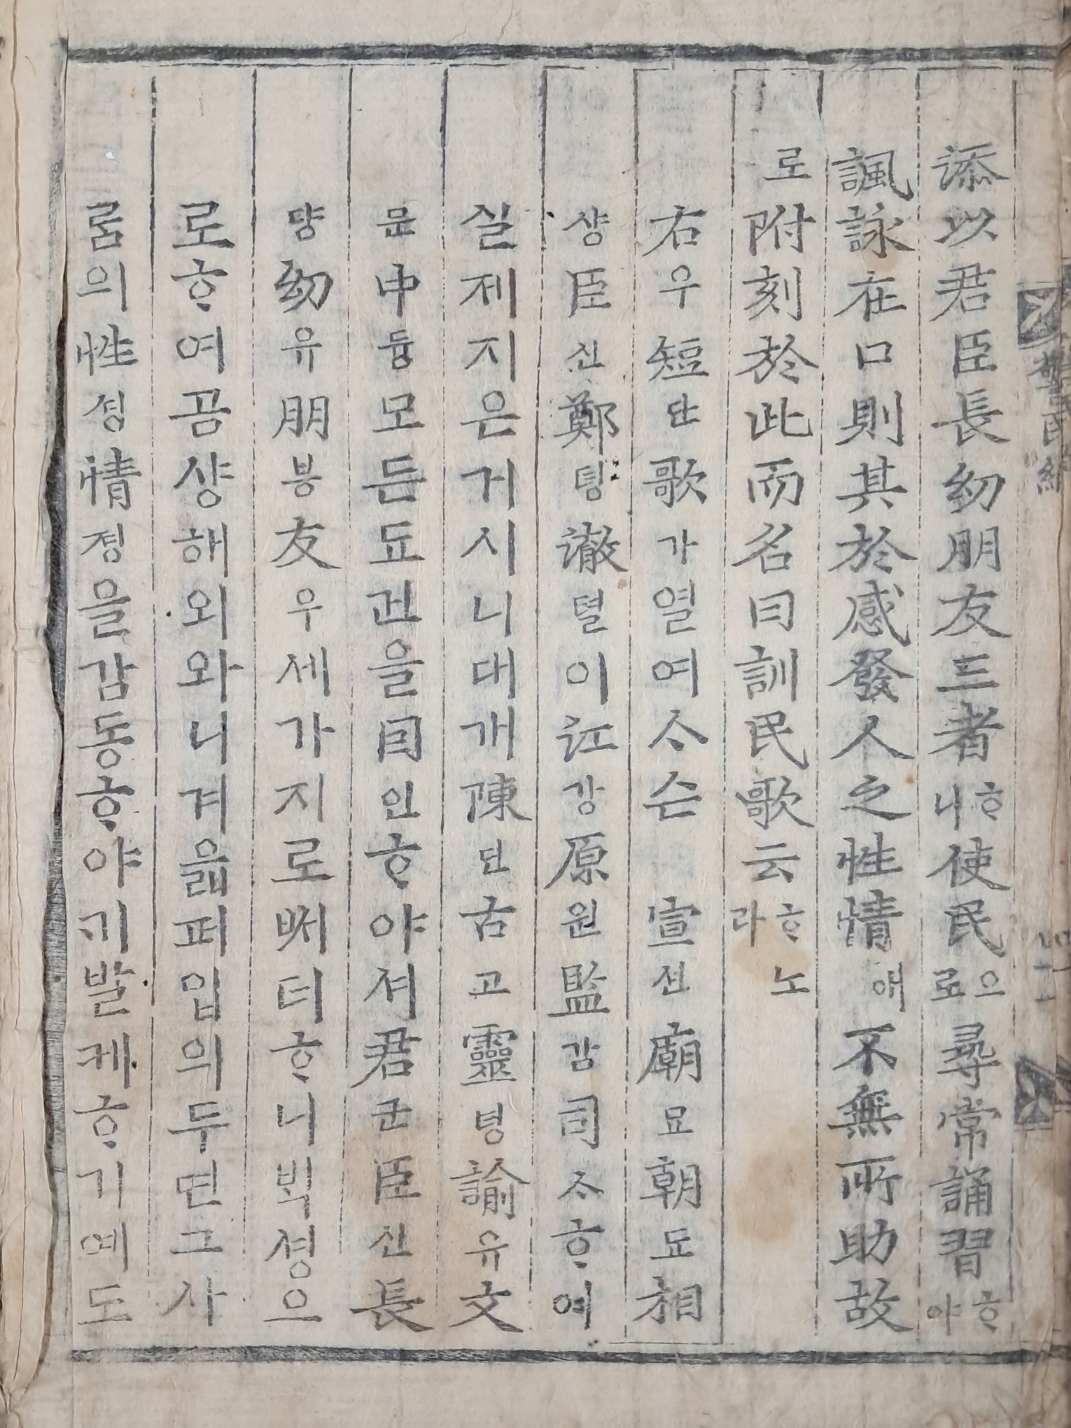 添以君臣長幼朋友三者ᄒᆞ니使民으로尋常誦習ᄒᆞ야
諷詠在口則其於感發人之性情애不無所助故
로附刻於此而名曰訓民歌云ᄒᆞ노라
右우短단歌가열여ᄉᆞᆺ슨 宣션廟묘朝됴相
샹臣신鄭뎡澈텰이江강原원監감司ᄉᆞᄒᆞ여
실제지은거시니대개陳딘古고靈령諭유文
문中듕모든됴건을因인ᄒᆞ야셔君군臣신長
댱幼유朋붕友우세가지로ᄡᅥ더ᄒᆞ니ᄇᆡᆨ셩으
로ᄒᆞ여곰샹해외와니겨읇퍼입의두면그사
룸의性셩情졍을감동ᄒᆞ야긔발케ᄒᆞ기예도
警民編